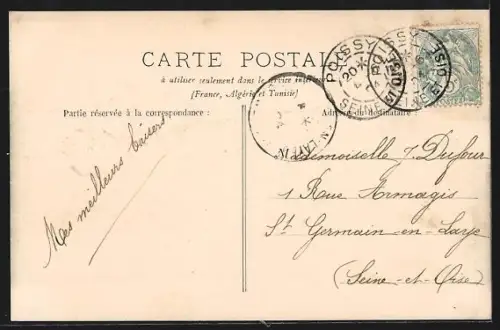 CARTE POSTALE
à utiliser seulement dans le service intérieur
[France, Algérie et Tunisie]
Partie réservée à la correspondance :
Adresse du destinataire :
Mes meilleurs baisers
Mademoiselle J. Dufour
1 Rue Armagis
St Germain-en-Laye
(Seine-et-Oise)
POISSY
SEINE
POISSY